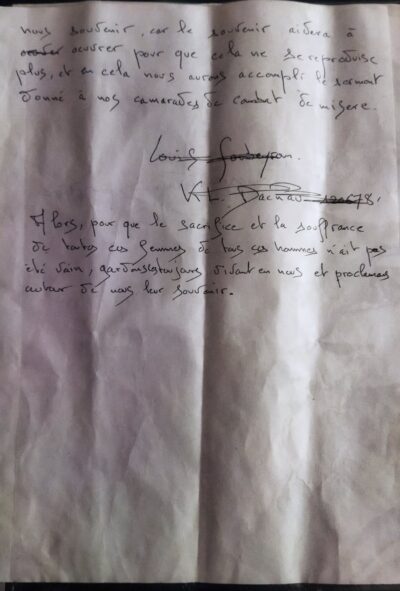 nous souvenir, car le souvenir aidera à
œuvrer pour que cela ne se reproduise
plus, et en cela nous aurons accompli le serment
donné à nos camarades de combat de misere.
Louis
K.L. Dachau
Alors, pour que le sacrifice et la souffrance
de toutes ces femmes de tous ces hommes n'ait pas
été vain, gardons toujours vivant en nous et proclamons
autour de nous leur souvenir.